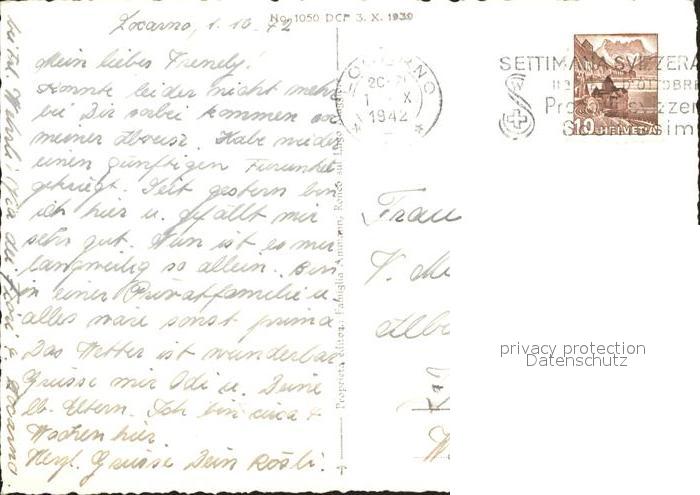 No. 1050 DCF 3. X. 1939
Locarno, 1. 10. 42
Mein liebes Trendy!
Konnte leider nicht mehr
bei Dir vorbei kommen vor
meiner Abreise. Habe wieder
einen günftigen Furunkel
gekriegt. Seit gestern bin
ich hier u. gefällt mir
sehr gut. Nun ist es mir
langweilig so allein. Bin
in einer Privatfamilie u.
alles wäre sonst prima
Das Wetter ist wunderbar
Grüsse mir Odi u. Deine
lb. Eltern. Ich bin circa 4
Wochen hier.
Herzl. Grüsse Dein Rösli.
Locarno
Proprietà editora: Famiglia
LOCARNO
1 X
1942
SETTIMANA SVIZZERA
OTTOBRE
10 HELVETIA
Frau
V.
privacy protection
Datenschutz